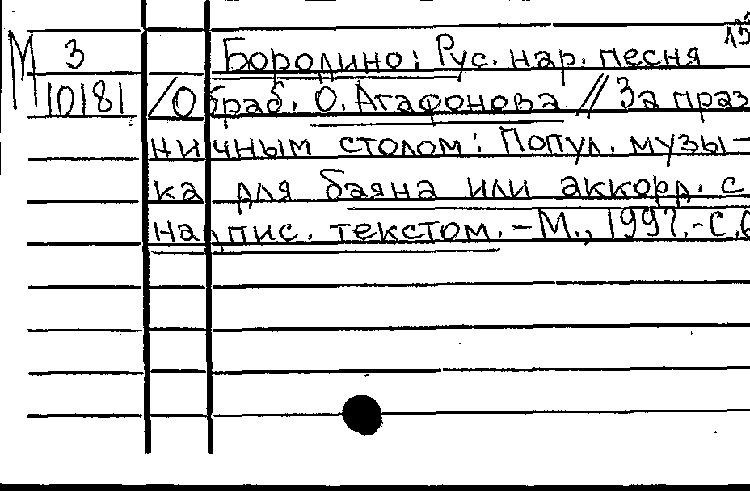 15
М 3 Бородино: Рус. нар. песня
10181 /Обраб. О. Агафонова // За праз
ничным столом: Попул. музы-
ка для баяна или аккорд. с
надпис. текстом. – М., 1997. - С.6